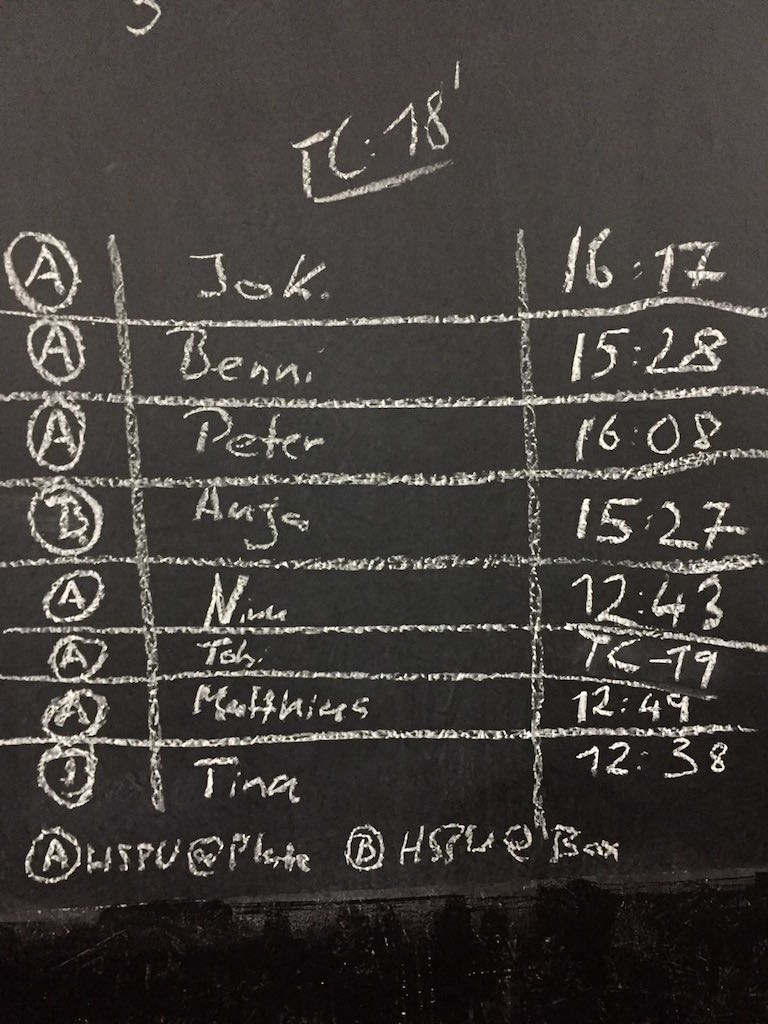 TC: 18'
A Jok. 16:17
A Benni 15:28
A Peter 16:08
B Anja 15:27
A Nina 12:43
A Tobi TC-19
A Matthias 12:49
Tina 12:38
A HSPU @ Plate B HSPU @ Box